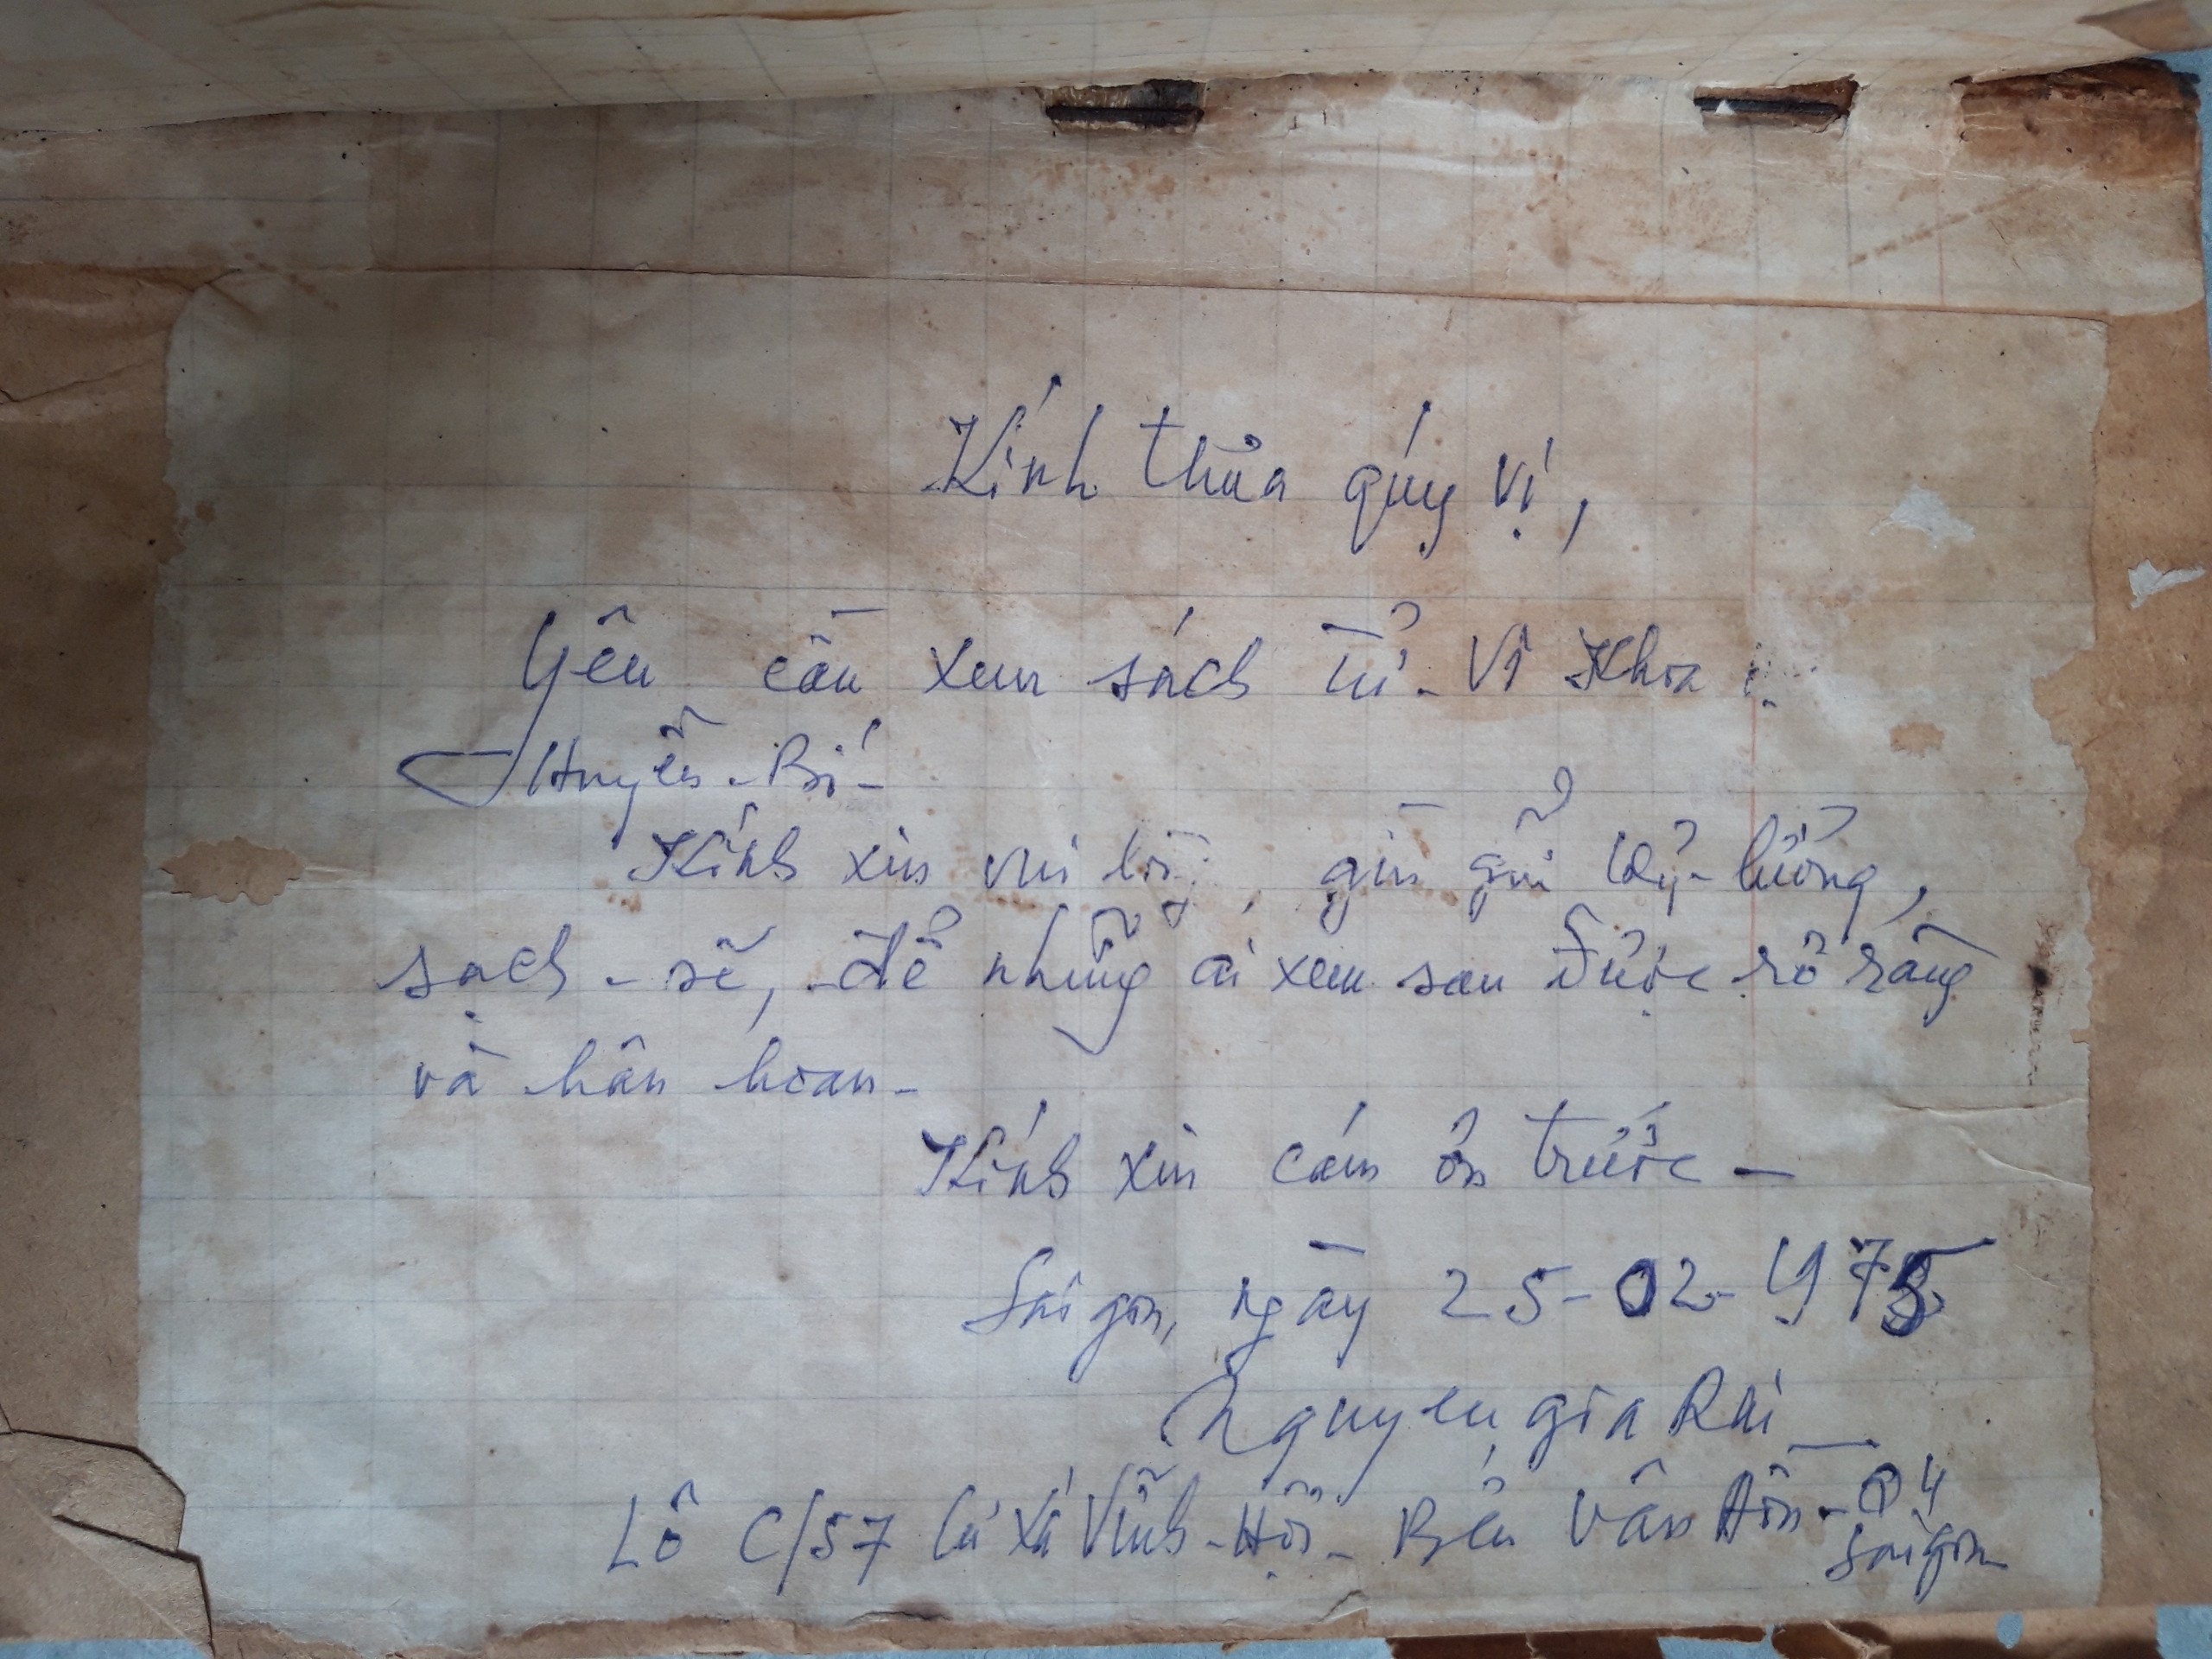 Kính thưa qúy vị,
Yêu cầu xem sách Tử-Vi Khoa
Huyền-Bí-
Kính xin vui lòng, gìn giữ kỹ-lưỡng,
sạch-sẽ, để những ai xem sau được rõ ràng
và hân hoan-
Kính xin cám ơn trước-
Saigon, ngày 25-02-1975
Nguyen gia
Lô C/57 Cư Xá Vĩnh-Hội-Bến Vân Đồn-Q4
Saigon